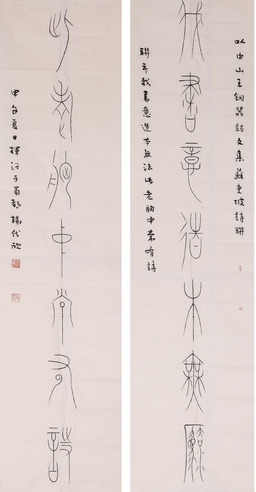 以中山王銅器銘文集蘇東坡詩聯
我書意造本無灋
聯云我書意造本無法此老胸中常有詩
此老胸中常有詩
甲午夏日揮汗于蜀楊代欣